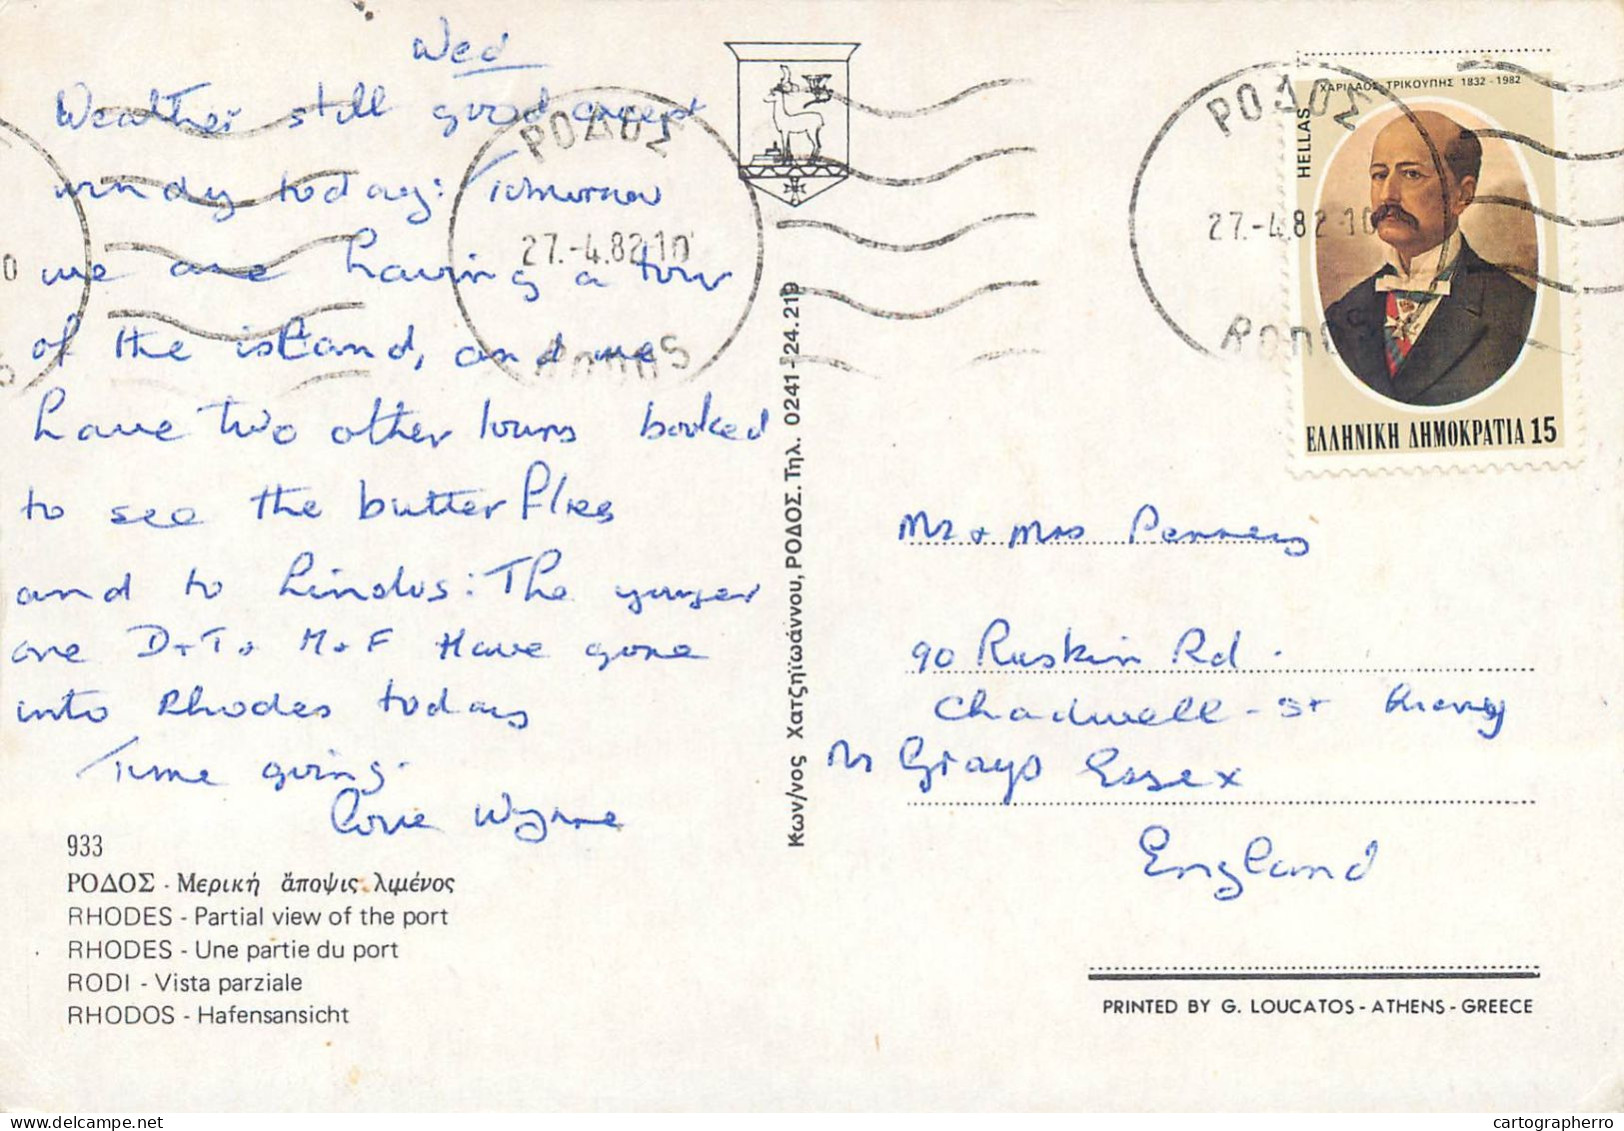 Wed
Weather still good except
windy today: Tomorrow
we are having a tour
of the island, and we
have two other tours booked
to see the butterflies
and to Lindos: The younger
one D+T+ M+F Have gone
into Rhodes today
Time going.
Love Wynne
933
ΡΟΔΟΣ - Μερική ἄποψις λιμένος
RHODES - Partial view of the port
RHODES - Une partie du port
RODI - Vista parziale
RHODOS - Hafensansicht
ΡΟΔΟΣ
27.-4.82 10
RODOS
Κων/νος Χατζηϊωάννου, ΡΟΔΟΣ. Τηλ. 0241-24.219
ΡΟΔΟΣ
27.-4.82 10
RODOS
ΧΑΡΙΛΑΟΣ ΤΡΙΚΟΥΠΗΣ 1832-1982
HELLAS
ΕΛΛΗΝΙΚΗ ΔΗΜΟΚΡΑΤΙΑ 15
Mr + Mrs Penney
90 Ruskin Rd.
Chadwell-St
Nr Grays Essex
England
PRINTED BY G. LOUCATOS - ATHENS - GREECE
cartographerro